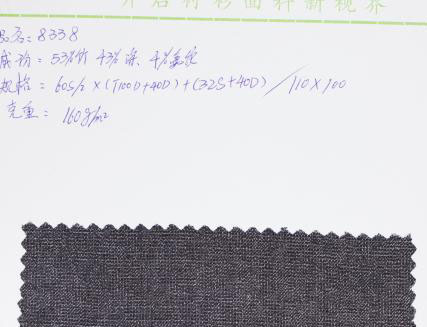 开启衬衫面料新视界
品名：8338
成份：53%竹 43%涤 4%氨纶
规格：60S/2×(T100D+40D)+(32S+40D)/110×100
克重：160g/m²